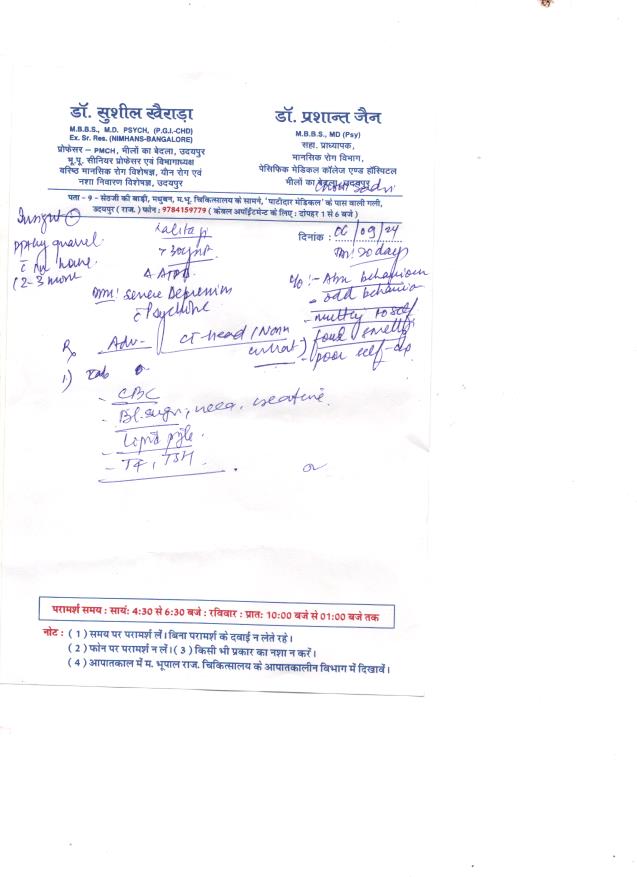 डॉ. सुशील खैराड़ा
M.B.B.S., M.D. PSYCH, (P.G.I.-CHD)
Ex. Sr. Res. (NIMHANS-BANGALORE)
प्रोफेसर – PMCH, भीलों का बेदला, उदयपुर
भू.पू. सीनियर प्रोफेसर एवं विभागाध्यक्ष
वरिष्ठ मानसिक रोग विशेषज्ञ, यौन रोग एवं
नशा निवारण विशेषज्ञ, उदयपुर
डॉ. प्रशान्त जैन
M.B.B.S., MD (Psy)
सहा. प्राध्यापक,
मानसिक रोग विभाग,
पेसिफिक मेडिकल कॉलेज एण्ड हॉस्पिटल
भीलों का बेदला, उदयपुर
पता – 9 - सेठजी की बाड़ी, मधुबन, म.भू. चिकित्सालय के सामने, 'पाटीदार मेडिकल' के पास वाली गली,
उदयपुर ( राज. ) फोन : 9784159779 ( केवल अपॉईंटमेन्ट के लिए : दोपहर 1 से 6 बजे )
दिनांक : 06/09/24
Insight
Lalita
20 days
c/o :- Abn behaviour
2-3 more
- odd behavior
severe Depression
- muttering to self
Rx Adv- CT-head
- poor self-
1)
- CBC
- Bl. sugar, urea, creatinine
- Lipid profile.
- T4, TSH
परामर्श समय : सायं: 4:30 से 6:30 बजे : रविवार : प्रात: 10:00 बजे से 01:00 बजे तक
नोट : ( 1 ) समय पर परामर्श लें। बिना परामर्श के दवाई न लेते रहे।
( 2 ) फोन पर परामर्श न लें। ( 3 ) किसी भी प्रकार का नशा न करें।
( 4 ) आपातकाल में म. भूपाल राज. चिकित्सालय के आपातकालीन विभाग में दिखावें।